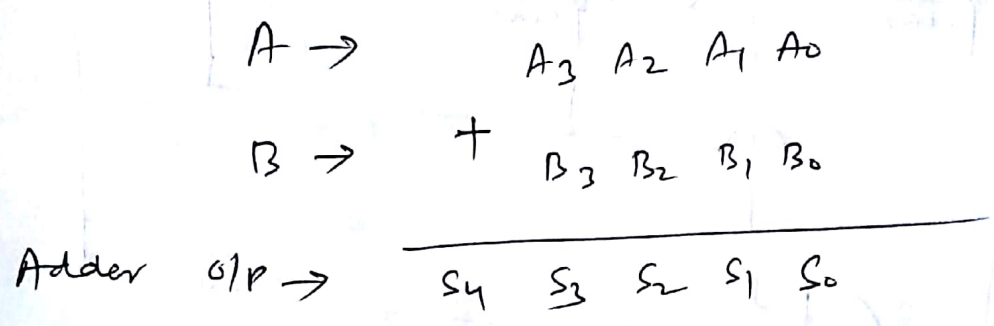 A → A3 A2 A1 A0
B → + B3 B2 B1 B0
Adder o/p → S4 S3 S2 S1 S0